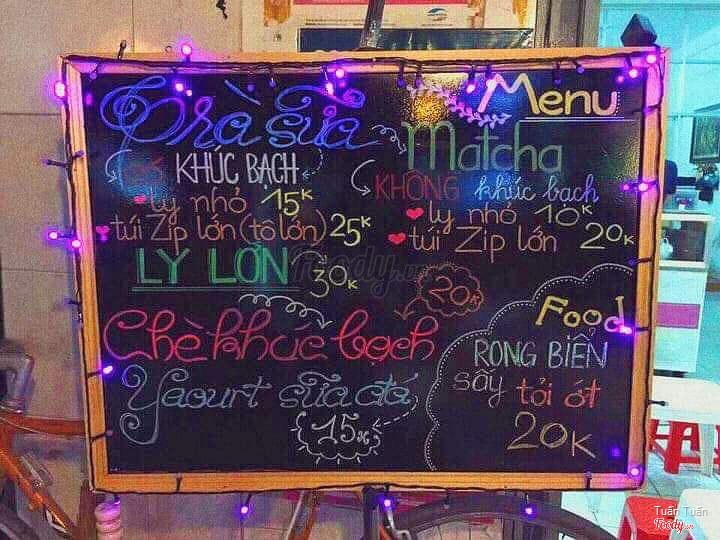 Menu
Trà sữa
Matcha
Có KHÚC BẠCH
ly nhỏ 15K
túi Zip lớn (tô lớn) 25K
LY LỚN 30K
KHÔNG khúc bạch
ly nhỏ 10K
túi Zip lớn 20K
Chè khúc bạch 20K
Yaourt sữa đá
15K
Food
RONG BIỂN
sấy tỏi ớt
20K
Foody.vn
Tuấn Tuấn
Foody.vn